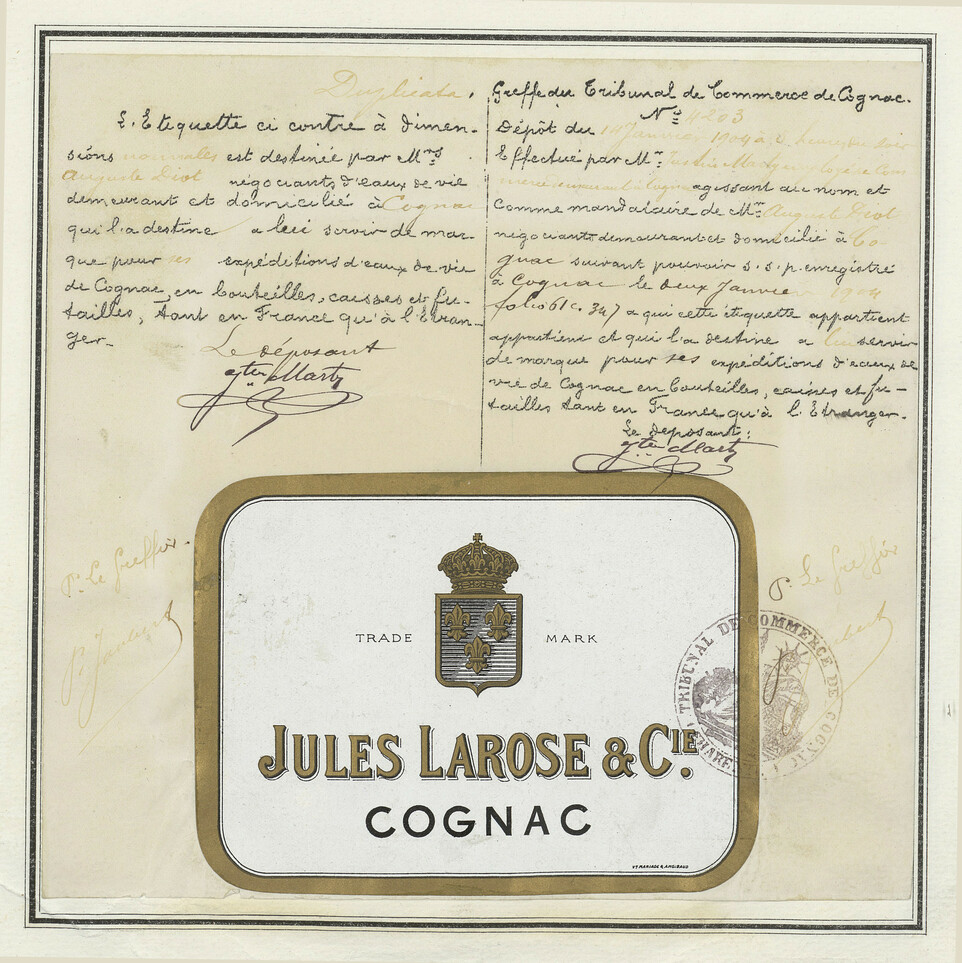 Duplicata.
L'Etiquette ci contre à dimen-
sions nouvelles est destinée par Mrs
Auguste Diot négociants d'eaux de vie
demeurant et domicilié à Cognac
qui l'a destine a lui servir de mar-
que pour ses expéditions d'eaux de vie
de Cognac, en bouteilles, caisses et fu-
tailles, tant en France qu'à l'Etran-
ger.
Le déposant
Greffe du Tribunal de Commerce de Cognac.
No 4203
Dépôt du 14 Janvier 1904 à heures du soir
Effectué par Mr
agissant au nom et
comme mandataire de Mr Auguste Diot
négociants demeurant et domicilié à Co-
gnac suivant pouvoir s.s.p. enregistré
à Cognac le deux Janvier 1904
folio 61 c. 347 a qui cette étiquette appartient
appartient et qui l'a destine a lui servir
de marque pour ses expéditions d'eaux de
vie de Cognac en bouteilles, caisses et fu-
tailles tant en France qu'à l'Etranger.
Le déposant:
Pr Le Greffier
Pr Le Greffier
TRADE MARK
JULES LAROSE & CIE.
COGNAC
TRIBUNAL DE COMMERCE DE COGNAC